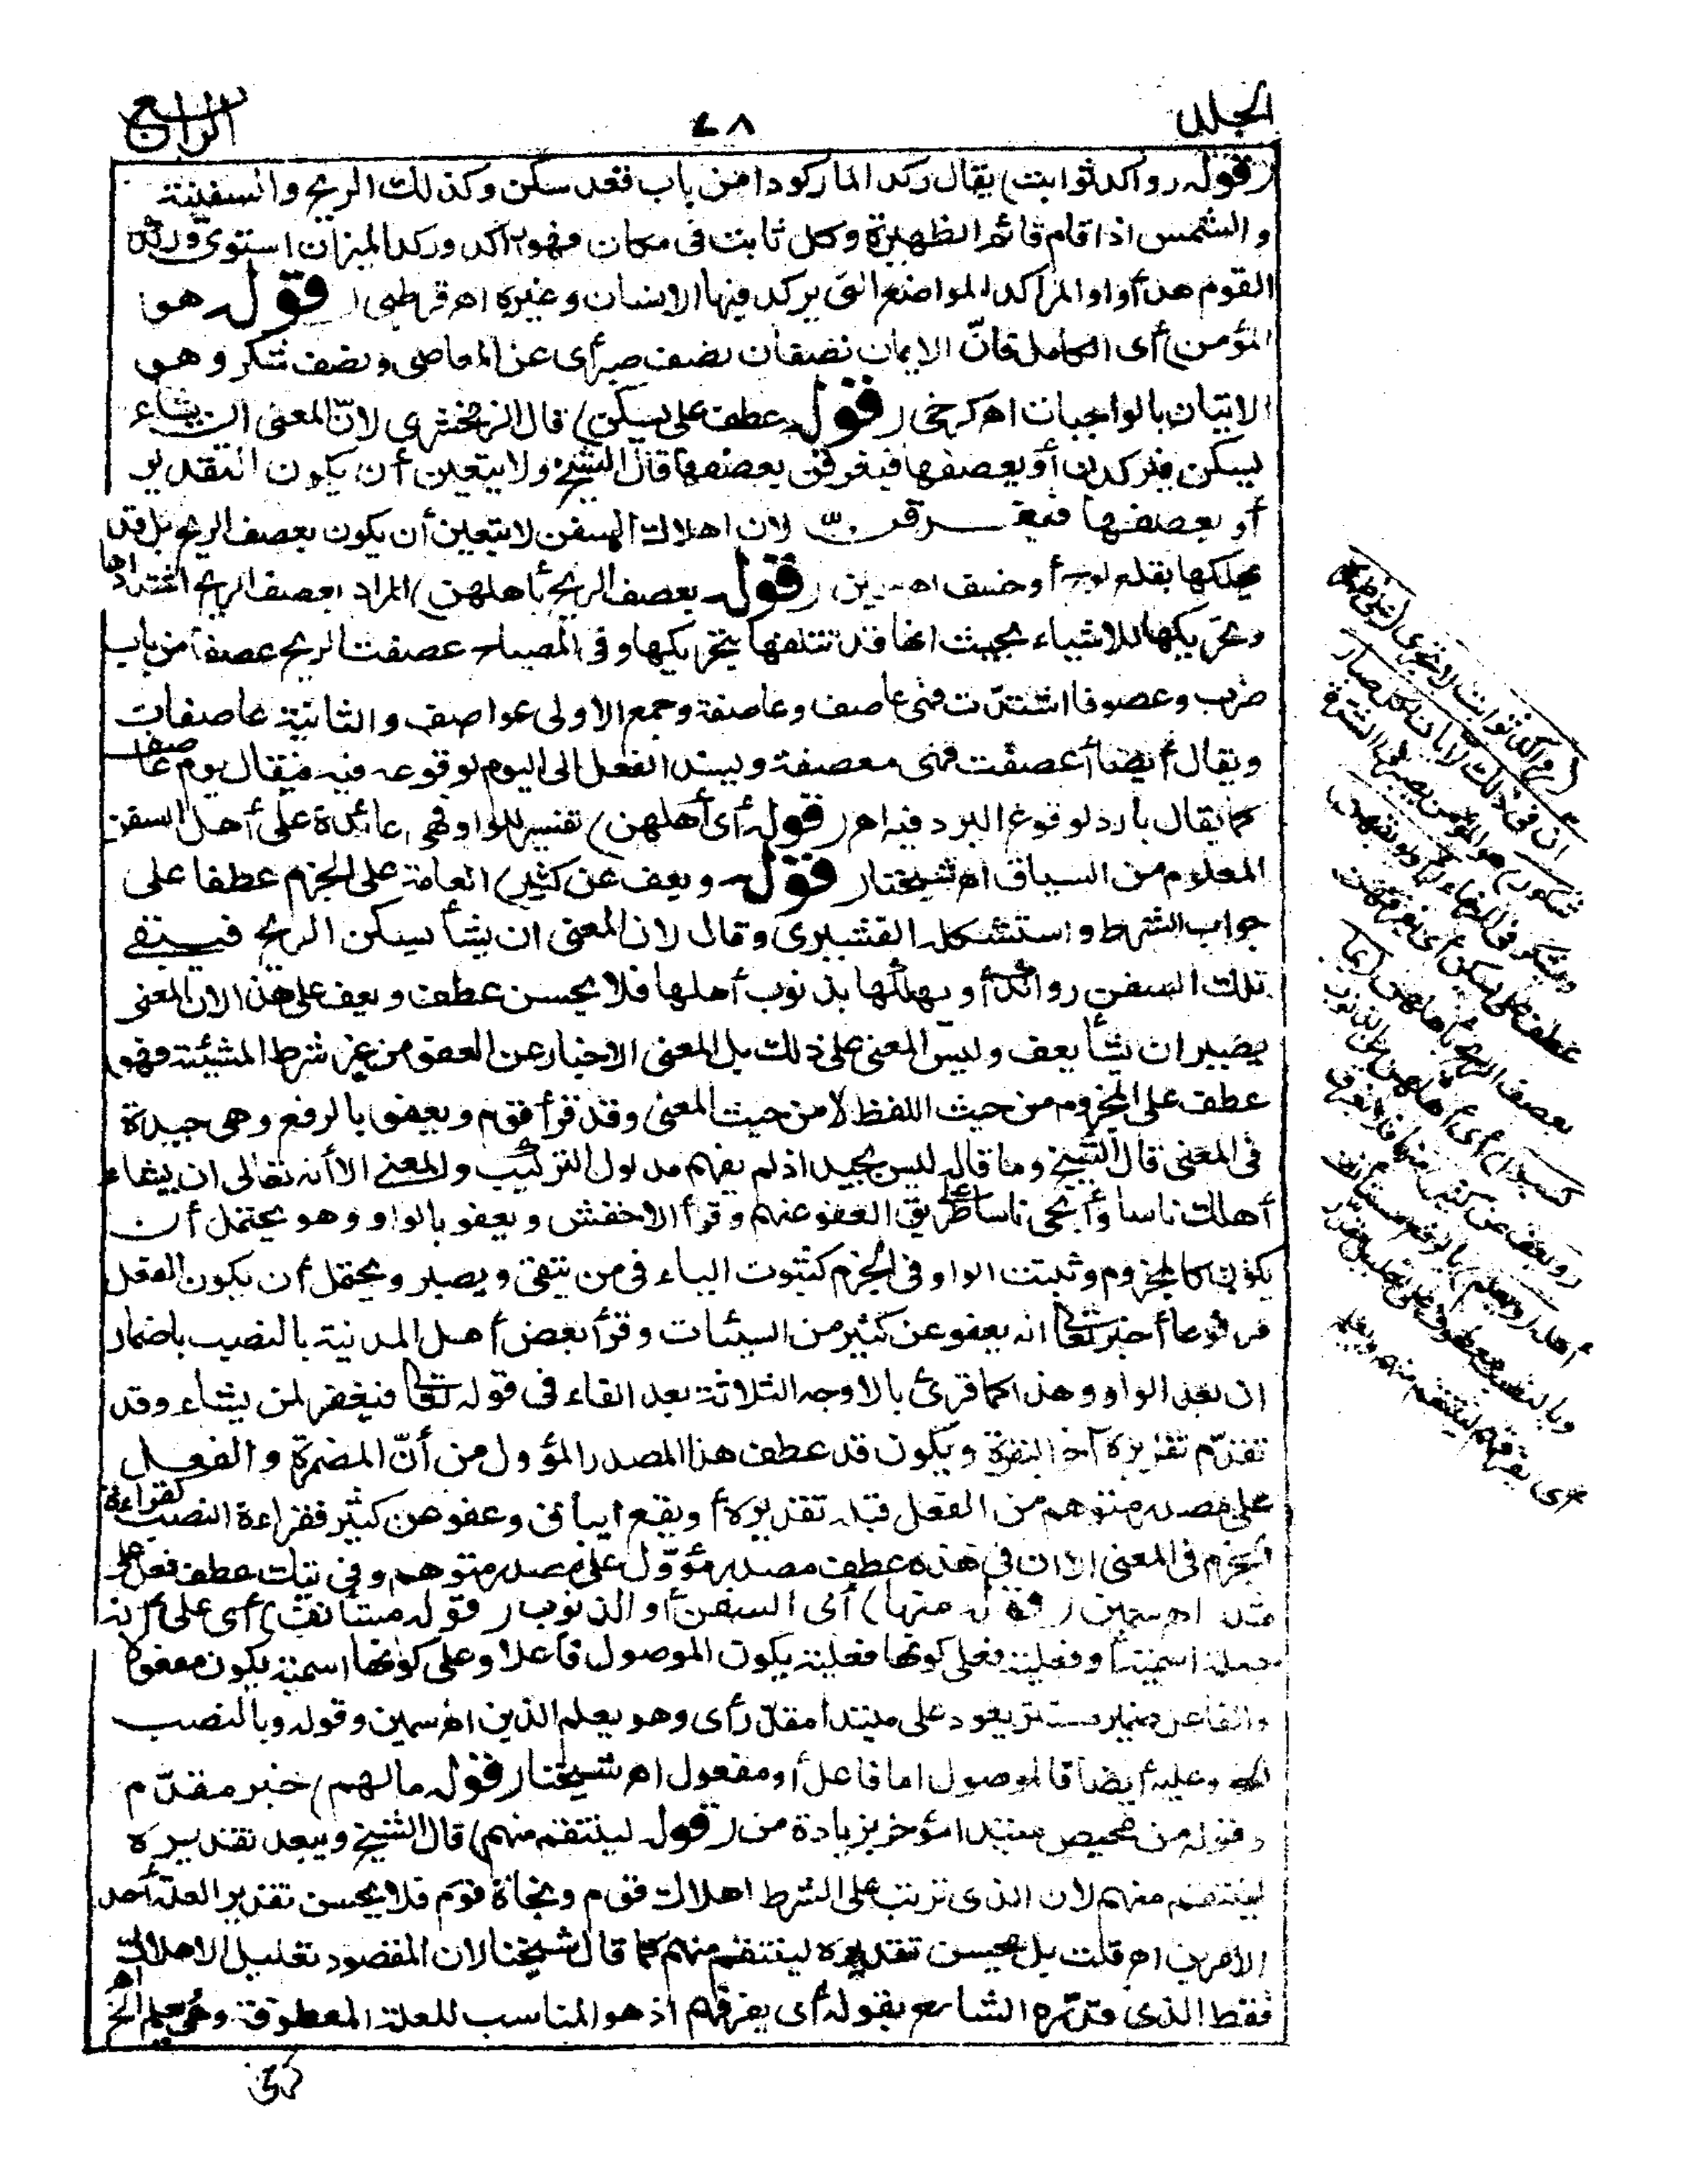 الجلد
٧٨
الرابع
(قوله رواكد ثوابت) يقال ركد الماء ركودا من باب قعد سكن وكذلك الريح والسفينة
والشمس اذا قام قائم الظهيرة وكل ثابت فى مكان فهو راكد وركد الميزان استوى وركد
القوم هدأوا والمراكد المواضع التى يركد فيها الانسان وغيره اھ قرطبى (قوله هو
المؤمن) أى الكامل فانّ الايمان نصفان نصف صبر أى عن المعاصى ونصف شكر وهو
الاتيان بالواجبات اھ كرخى (قوله عطف على يسكن) قال الزمخشرى لانّ المعنى ان يشاء
يسكن فيركدن أو يعصفها فيغرقن بعصفها قال الشيخ ولا يتعين أن يكون التقدير
أو يعصفها فيغرقن لان اهلاك السفن لا يتعين أن يكون بعصف الريح بل قد
يهلكها بقلع لوح أو خسف اھ سمين (قوله بعصف الريح بأهلهن) المراد بعصف الريح اشتدادها
وتحريكها للاشياء بحيث انها قد تتلفها بتحريكها وفى المصباح عصفت الريح عصفا من باب
ضرب وعصوفا اشتدّت فهى عاصف وعاصفة وجمع الاولى عواصف والثانية عاصفات
ويقال أيضا أعصفت فهى معصفة ويسند الفعل الى اليوم لوقوعه فيه فيقال يوم عاصف
كما يقال بارد لوقوع البرد فيه اھ (قوله أى أهلهن) تفسير للواو فهى عائدة على أهل السفن
المعلوم من السياق اھ شيخنا (قوله ويعف عن كثير) العامة على الجزم عطفا على
جواب الشرط واستشكله القشيرى وقال لان المعنى ان يشأ يسكن الريح فيبقى
تلك السفن رواكد أو يهلكها بذنوب أهلها فلا يحسن عطف ويعف على هذا لان المعنى
يصير ان يشأ يعف وليس المعنى على ذلك بل المعنى الاخبار عن العفو من غير شرط المشيئة فهو
عطف على المجزوم من حيث اللفظ لا من حيث المعنى وقد قرأ قوم ويعفو بالرفع وهى جيدة
فى المعنى قال الشيخ وما قاله ليس بجيد اذ لم يفهم مدلول التركيب والمعنى الا أنه تعالى ان يشاء
أهلك ناسا وأنجى ناسا على طريق العفو عنهم وقرأ الاخفش ويعفو بالواو وهو يحتمل أن
يكون كالمجزوم وثبتت الواو فى الجزم كثبوت الياء فى من يتقى ويصبر ويحتمل أن يكون الفعل
مرفوعا أخبر تعالى انه يعفو عن كثير من السيئات وقرأ بعض أهل المدينة بالنصب باضمار
ان بعد الواو وهذا كما قرئ بالاوجه الثلاثة بعد الفاء فى قوله تعالى فيغفر لمن يشاء وقد
تقدّم تقريره آخر البقرة ويكون قد عطف هذا المصدر المؤول من أنّ المضمرة والفعل
على مصدر متوهم من الفعل قبله تقديره أو يقع ايباق وعفو عن كثير فقراءة النصب كقراءة
الجزم فى المعنى الا ان فى هذه عطف مصدر مؤوّل على مصدر متوهم وفى تيك عطف فعل على
مثله اھ سمين (قوله منها) أى السفن أو الذنوب (قوله مستأنف) أى على أنه
جملة اسمية أو فعلية فعلى كونها فعلية يكون الموصول فاعلا وعلى كونها اسمية يكون مفعولا
والفاعل ضمير مستتر يعود على مبتدأ مقدّر أى وهو يعلم الذين اھ سمين وقوله وبالنصب
وعليه أيضا فالموصول اما فاعل أو مفعول اھ شيخنا (قوله ما لهم) خبر مقدّم
وقوله من محيص مبتدا مؤخر بزيادة من (قوله لينتقم منهم) قال الشيخ ويبعد تقديره
لينتقم منهم لان الذى ترتب على الشرط اهلاك قوم ونجاة قوم فلا يحسن تقدير العلة أحد
الامرين اھ قلت بل يحسن تقديره لينتقم منهم كما قال شيخنا لان المقصود تعليل الاهلاك
فقط الذى قدّره الشارح بقوله أى يغرقهم اذ هو المناسب للعلة المعطوفة وهى ويعلم الخ اھ
كرخى
(رواكد) ثوابت لا تجرى (على ظهره
ان فى ذلك لآيات لكل صبار
شكور) هو المؤمن يصبر فى الشدة
ويشكر فى الرخاء (أو يوبقهن)
عطف على يسكن أى يغرقهن
بعصف الريح بأهلهن (بما
كسبوا) أى أهلهن من الذنوب
(ويعف عن كثير) منها فلا يغرق
أهله (ويعلم) بالرفع مستأنف
وبالنصب معطوف على تعليل مقدّر
أى يغرقهم لينتقم منهم ويعلم